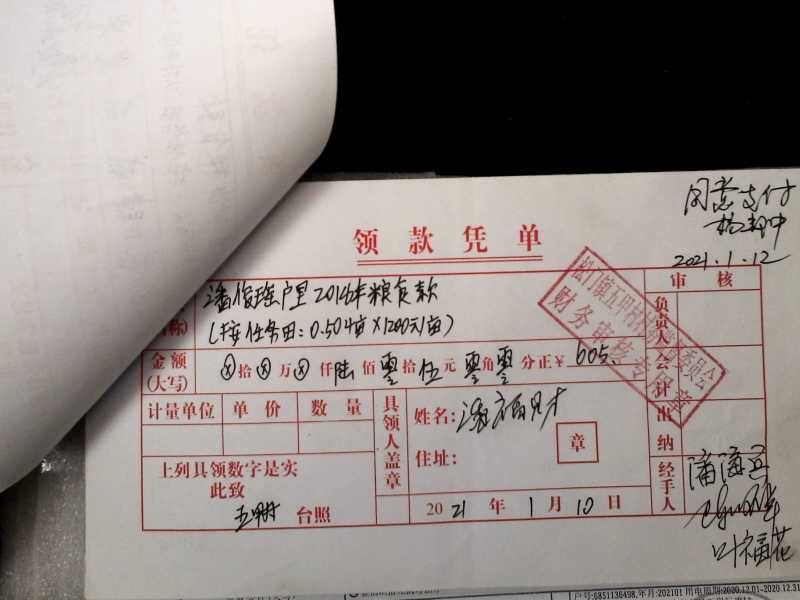 同意支付
2021.1.12
领款凭单
审核
潘俊瑶户里2016年粮食款
称)
(按任务田:0.504亩×1200元/亩)
负责人
财务审核专用章
金额
(大写)
⊗拾⊗万⊗仟陆佰零拾伍元零角零分正¥605.
会计
计量单位 单价 数量
具领人盖章
姓名:
章
住址:
出纳
上列具领数字是实
此致
五甲村 台照
2021年1月10日
经手人
叶福花
户号:6851136498,年月:202101 用电周期:2020.12.01-2020.12.31